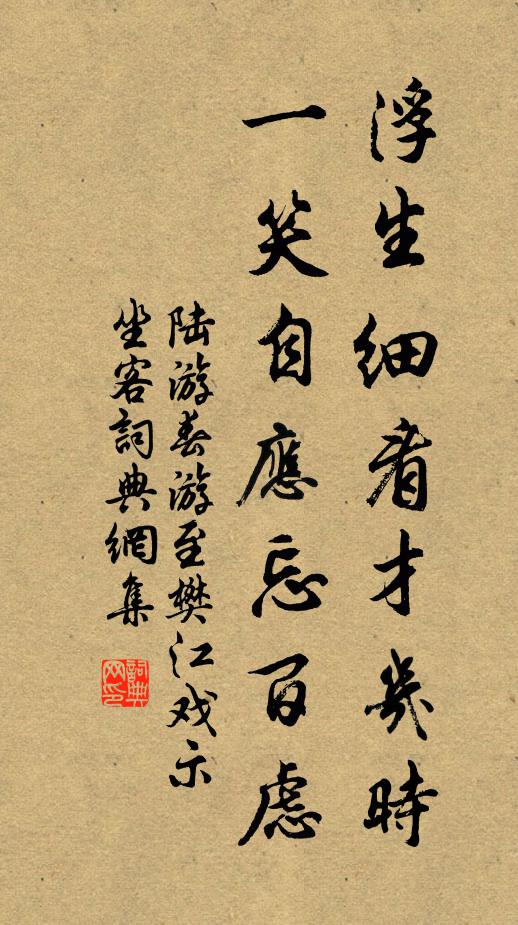 浮生細看才幾時
一笑自應忘百慮
陆游春游至樊江戏示
坐客詞典網集
詞典网印